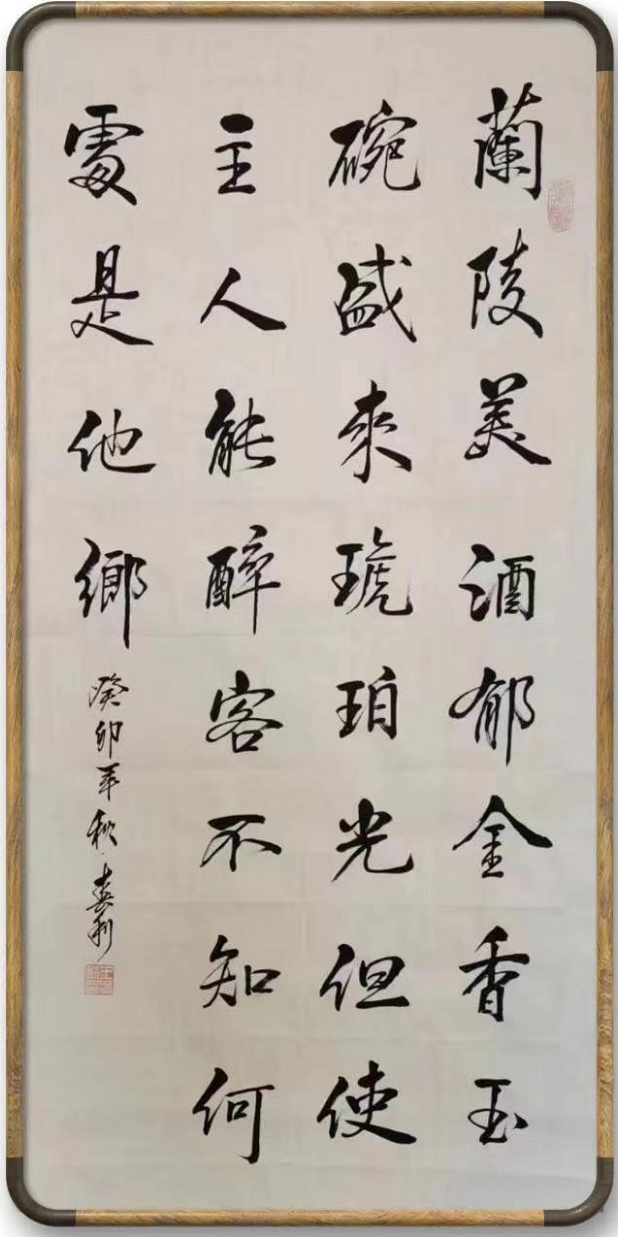 蘭陵美酒郁金香玉
碗盛來琥珀光但使
主人能醉客不知何
處是他鄉
癸卯年秋